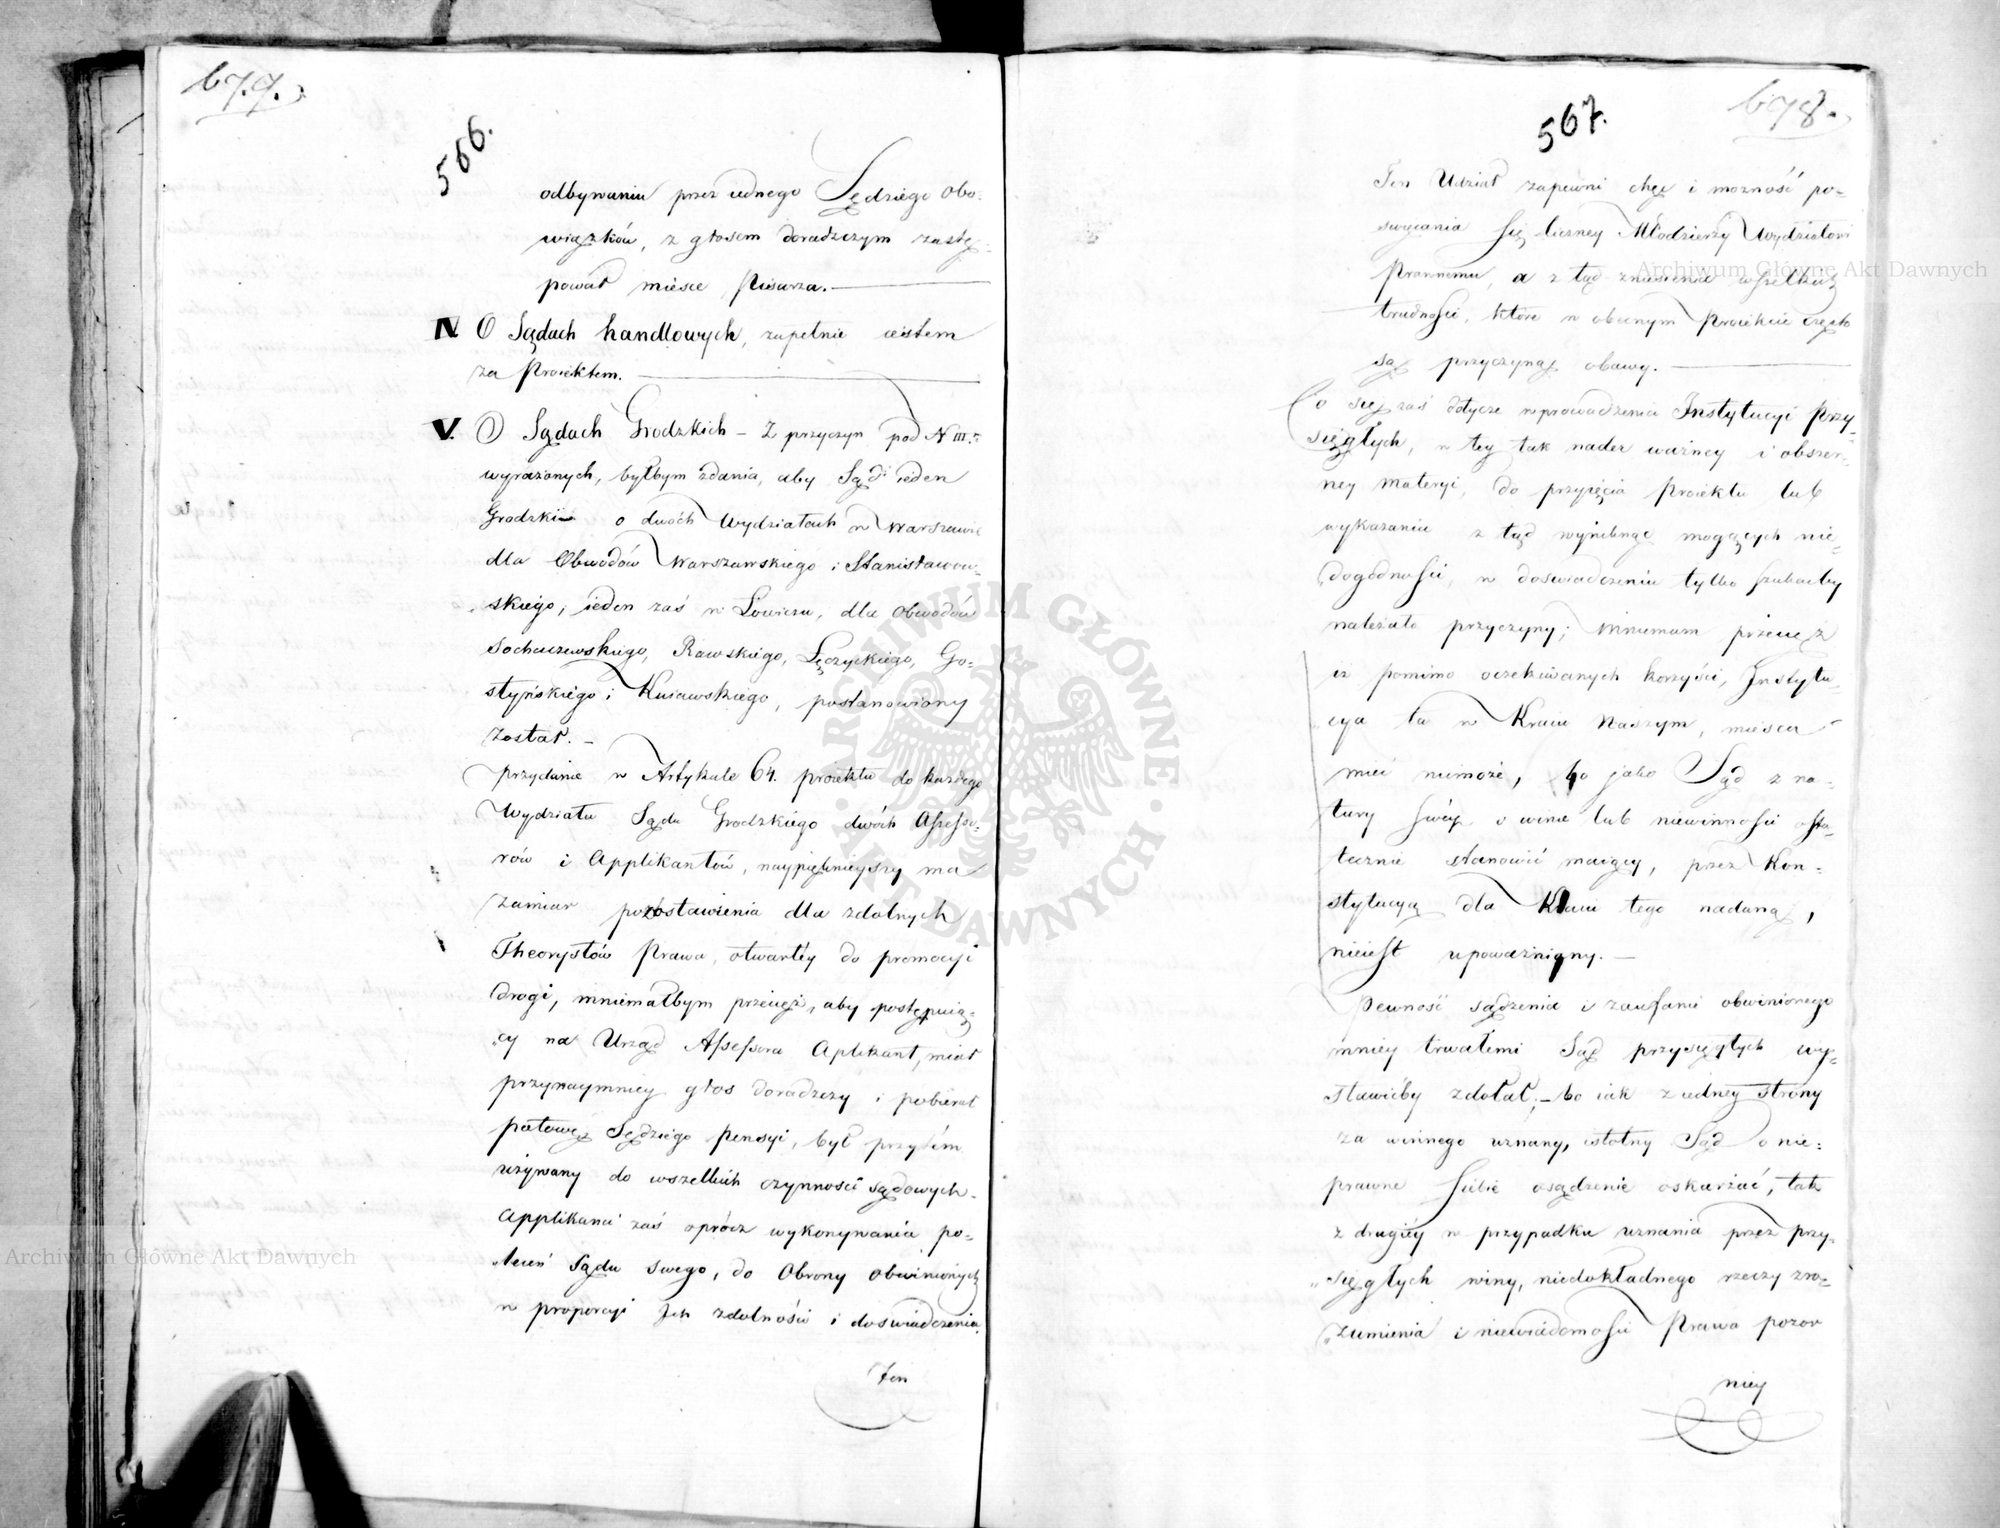 677.
566.
odbywaniu przez iednego Sędziego obo-
wiązków, z głosem doradczym zastę-
pował mieisce Pisarza.
IV. O Sądach handlowych, zupełnie iestem
za Proiektem.
V. O Sądach Grodzkich – Z przyczyn pod N III.
wyrażonych, byłbym zdania, aby Sąd ieden
Grodzki o dwóch Wydziałach w Warszawie
dla Obwodów Warszawskiego i Stanisławow-
skiego, ieden zaś w Łowiczu, dla Obwodów
Sochaczewskiego, Rawskiego, Łęczyckiego, Go-
styńskiego i Kuiawskiego, postanowiony
został. –
przydanie w Artykule 64. proiektu do każdego
Wydziału Sądu Grodzkiego dwóch Assesso-
rów i Applikantów, naypięknieyszy ma
zamiar pozostawienia dla zdolnych
Theorystów Prawa, otwartéy do promocyi
drogi, mniemałbym przecięż, aby postępuią-
cy na Urząd Assessora Aplikant, miał
przynaymniey głos doradczy i pobierał
połowę Sędziego Pensyi, był przytém
używany do wszelkich czynności sądowych.
Applikanci zaś oprócz wykonywania po-
leceń Sądu swego, do Obrony obwinionych
w proporcyi Jch zdolności i doświadczenia,
Ten
678.
567.
Ten Udział zapewni chęć i możność po-
swięcania się liczney Młodzieży Wydziałowi
Prawnemu, a z tąd zniesienie wszelkich
trudności, które w obecnym Proiekcie często
są przyczyną obawy.
Co się zaś dotycze wprowadzenia Instytucyi Przy-
sięgłych, w tey tak nader ważney i obszer-
ney materyi, do przyięcia Proiektu lub
wykazania z tąd wyniknąć mogących nie-
dogodności, w doświadczeniu tylko szukaćby
należało przyczyny; mniemam przecięż
iż pomimo oczekiwanych korzyści, Instytu-
cya ta w Kraiu Naszym, mieisca
mieć niemoże, bo jako Sąd z na-
tury swéy o winie lub niewinności osta-
tecznie stanowić maiący, przez Kon-
stytucyą dla Kraiu tego nadaną,
nieiest upoważniony. –
Pewność sądzenia i zaufanie obwinionego
mniey trwałemi Sąd przysięgłych wy-
stawićby zdołał; – bo iak z iedney strony
za winnego uznany, istotny Sąd o nie-
prawne siebie osądzenie oskarżać, tak
z drugiéy w przypadku uznania przez przy-
sięgłych winy, niedokładnego rzeczy zro-
zumienia i niewiadomości Prawa pozor
niey
Archiwum Główne Akt Dawnych
Archiwum Główne Akt Dawnych
ARCHIWUM GŁÓWNE · AKT DAWNYCH ·